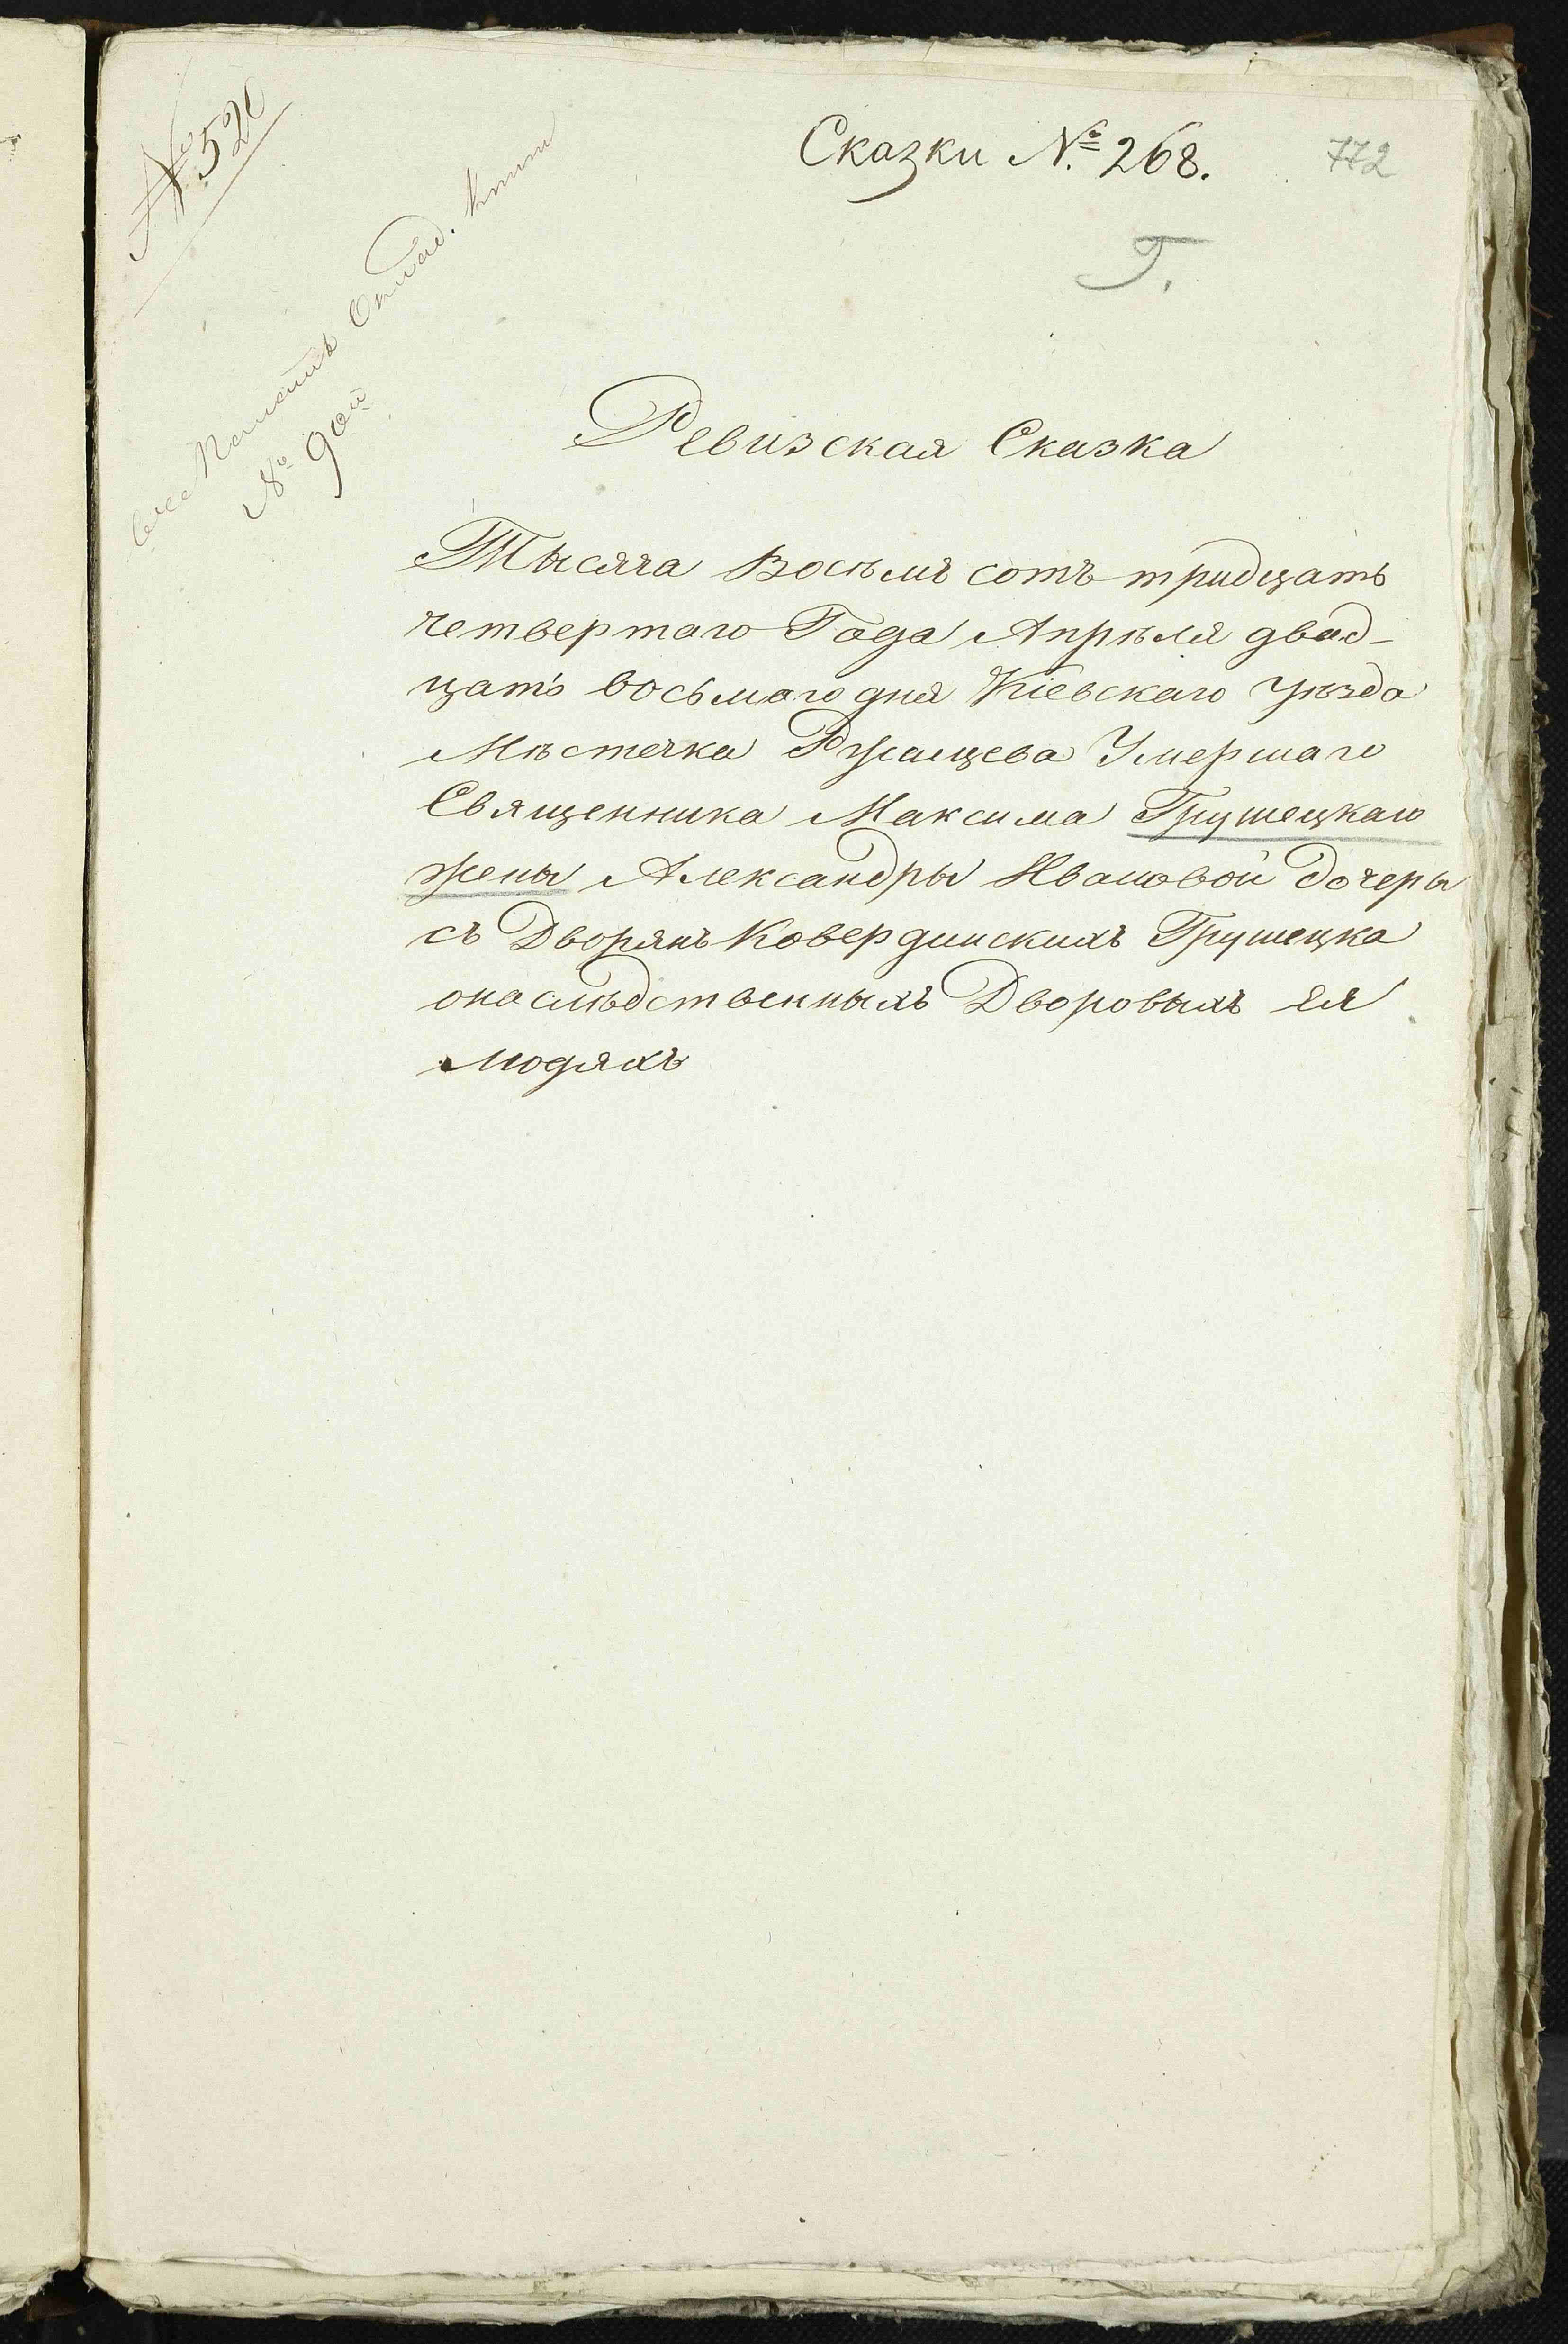 № 520
Сказки №. 268.
772
Г.
№ 9ой
Ревизская Сказка
Тысяча Восемь сотъ тридцать
четвертаго Года Апрѣля двад-
цать восьмаго дня Кіевскаго Уѣзда
Мѣстечка Ржищева Умершаго
Священника Максима Грушецкаго
жены Александры Ивановой Дочеры
съ Дворянъ Ковердинскихъ Грушецка
онаслѣдственныхъ Дворовыхъ Ея
людяхъ